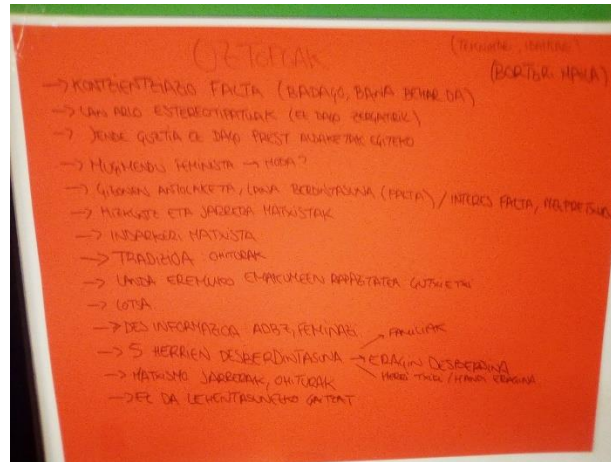 OZTOPOAK
(BORTORI MAILA)
→ KONTZIENTZIAZIO FALTA (BADAGO, BAINA BEHAR DA)
→ LAN ARLO ESTEREOTIPATUAK (EZ DAGO ZERGATIK)
→ JENDE GUZTIA EZ DAGO PREST ALDAKETAK EGITEKO
→ MUGIMENDU FEMINISTA → MODA?
→ GIZONAN ANTOLAKETA, LANA BERDINTASUNA (FALTA) / INTERES FALTA,
→ HIZKUNTZ ETA JARRERA MATXISTAK
→ INDARKERI MATXISTA
→ TRADIZIOA OHITURAK
→ LANDA EREMUKO EMAKUMEEN
→ LOTSA
→ DESINFORMAZIOA ADBZ, FEMINAZI
→ 5 HERRIEN DESBERDINTASUNA → ERAGIN DESBERDINA
FAMILIAK
HERRI TXIKI / HANDI ERAGINA
→ MATXISMO JARRERAK, OHITURAK
→ EZ DA LEHENTASUNEZKO GAITZAT